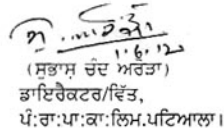 1.6.12
(ਸੁਭਾਸ਼ ਚੰਦ ਅਰੋੜਾ)
ਡਾਇਰੈਕਟਰ/ਵਿੱਤ,
ਪੰ:ਰਾ:ਪਾ:ਕਾ:ਲਿਮ.ਪਟਿਆਲਾ